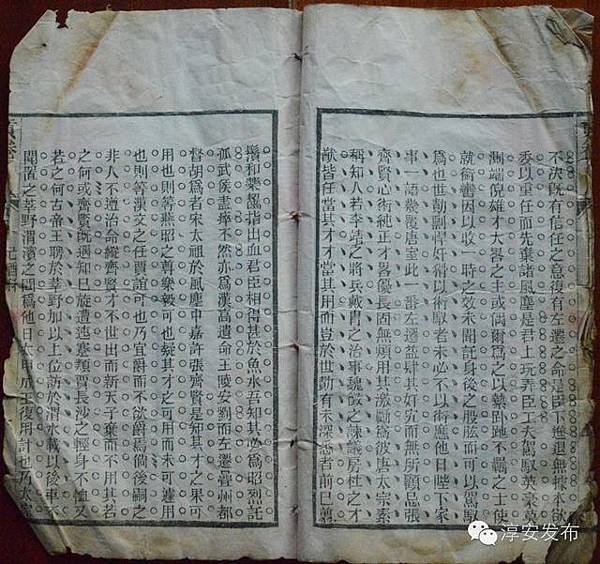 不決既有信任之意復有左遷之命是臣下進退無據本欲
委以重任而先棄諸風塵是君上玩弄臣工夫駕馭英豪莫
淵端倪雄才大畧之主或偶爾爲之以縶跅跎不羈之士使
就銜轡因以收一時之效未聞託身後之股肱而可以駕馭
爲也世勣剽悍奸猾以術馭者未必不以術應他日陛下家
事一語幾覆唐室此一番左遷益肆其奸宄而無所顧忌張
齊賢心術純正才畧優長固無煩用其激勵爲彼唐太宗素
稱知人若李靖之將兵戴胄之治事魏徵之諫議房杜之才
猷皆任當其才才當其用而豈於世勣有未深悉者前已剪
鬚和藥齧指出血君臣相得甚於魚水吾知其必爲昭烈託
孤武侯盡瘁不然亦爲漢高遺命王陵安劉而左遷疊州都
督胡爲者宋太祖於風塵中嘉許張齊賢是知其才之果可
用也則等燕昭之尊樂毅可也疑其才之可用而未可遽用
也則等漢文之任賈誼可也乃宜爵而不欲爵焉倘後嗣之
非人不遵治命縱齊賢才不世出而新天子棄而不用其若
之何或齊賢既遇知已旋遭迍蹇類賈長沙之輕身不恤又
若之何古帝王聘於莘野加以上位訪於渭水載以後車不
聞置之莘野渭濱之間爲他日太甲成王復用計也乃太宗
淳安发布